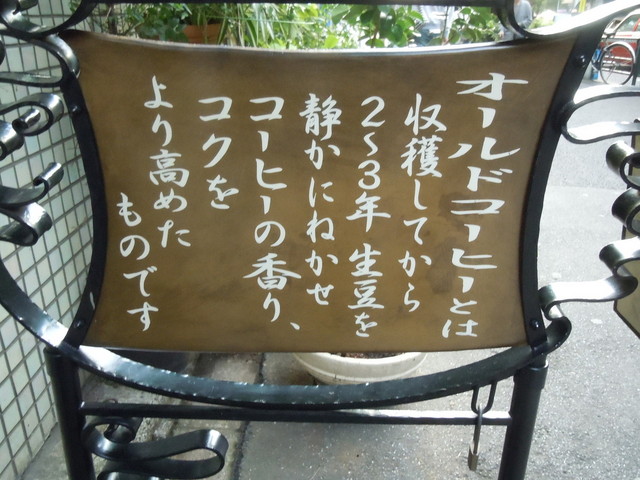 オールドコーヒーとは
収穫してから
2~3年 生豆を
静かにねかせ
コーヒーの香り、
コクを
より高めた
ものです